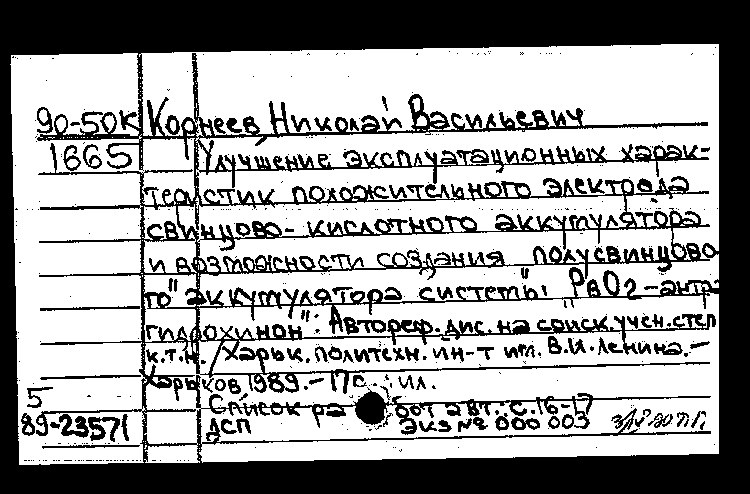 90-50К Корнеев Николай Васильевич
1665 Улучшение эксплуатационных харак-
теристик положительного электрода
свинцово-кислотного аккумулятора
и возможности создания полусвинцово
го "аккумулятора системы "PbO2-антра-
гидрохинон": Автореф. дис. на соиск. учен. степ
к.т.н. / Харьк. политехн. ин-т им. В.И. Ленина.-
Харьков 1989.-17с. : ил.
5 Список работ авт.: с.16-17
89-23571 ДСП Экз № 000 003